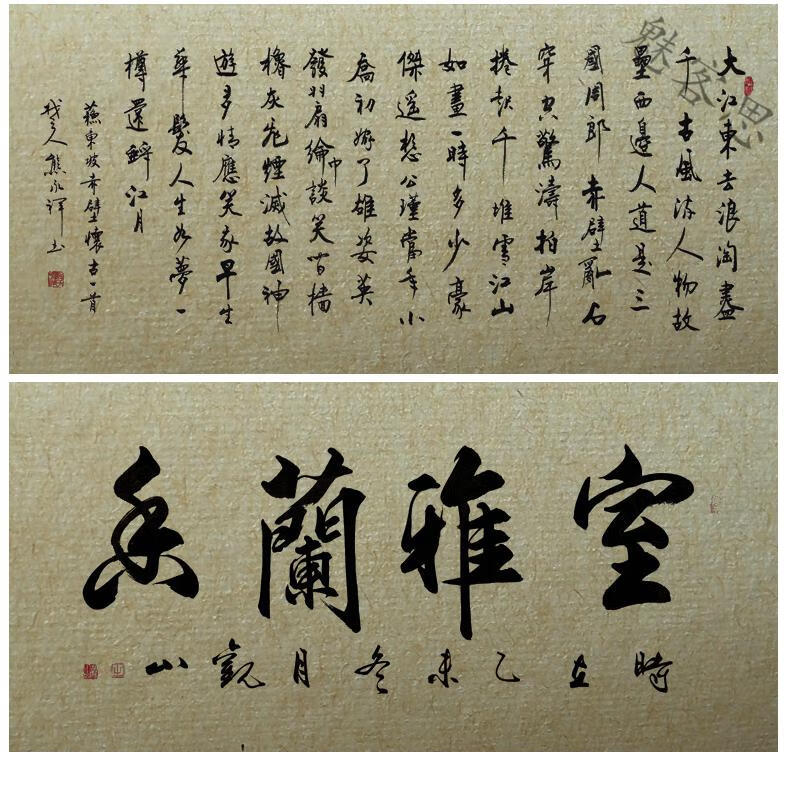 大江東去浪淘盡
千古風流人物故
壘西邊人道是三
國周郎赤壁亂石
穿空驚濤拍岸
捲起千堆雪江山
如畫一時多少豪
傑遥想公瑾當年小
喬初嫁了雄姿英
發羽扇綸巾談笑間檣
櫓灰飛煙滅故國神
遊多情應笑我早生
華髮人生如夢一
樽還酹江月
蘇東坡赤壁懷古一首
室雅蘭香
時在乙未冬月觀山